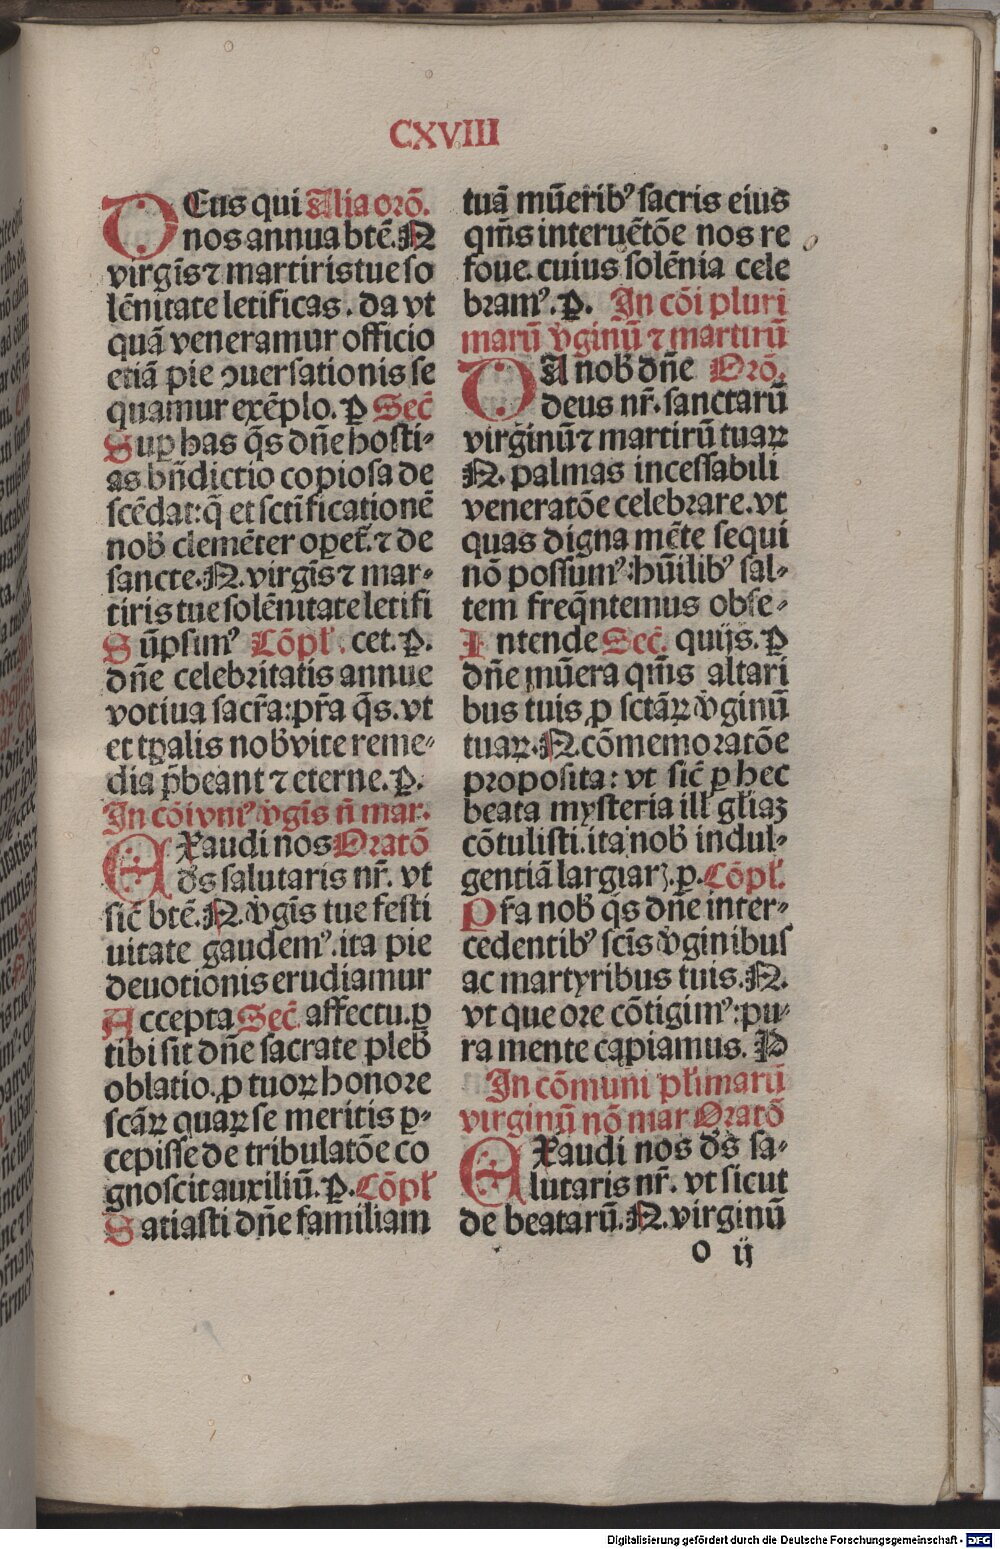 CXVIII
DEus qui Alia orõ.
nos annua btẽ. N
virgĩs ⁊ martiris tue so
lẽnitate letificas. da vt
quã veneramur officio
etiã pie ꝯuersationis se
quamur exẽplo. P Sec̃
Suꝑ has q̃s dñe hosti-
as bñdictio copiosa de
scẽdat: q̃ et sctĩficationẽ
nob̃ clemẽter oꝑet̃. ⁊ de
sancte. N. virgĩs ⁊ mar-
tiris tue solẽnitate letifi
Sũpsimꝰ Cõpl̃. cet. P.
dñe celebritatis annue
votiua sacr̃a: pr̃a q̃s. vt
et tꝑalis nob̃ vite reme-
dia p̃beant ⁊ eterne. P.
In cõi vniꝰ v̾gĩs ñ mar.
EXaudi nos Oratõ
d̃s salutaris nr̃. vt
sic̃ btẽ. N. v̾gĩs tue festi
uitate gaudemꝰ. ita pie
deuotionis erudiamur
Accepta Sec̃. affectu. p
tibi sit dñe sacrate pleb̃
oblatio. ꝓ tuoꝝ honore
scãꝝ quaꝝ se meritis ꝑ-
cepisse de tribulatõe co
gnoscit auxiliũ. P. Cõpl̃
Satiasti dñe familiam
tuã mũeribꝰ sacris eius
qm̃s interuẽtõe nos re
foue. cuius solẽnia cele
bramꝰ. P. In cõi pluri
marũ v̾ginũ ⁊ martirũ
DA nob̃ dñe Orõ.
deus nr̃. sanctarũ
virginũ ⁊ martirũ tuaꝝ
N. palmas incessabili
veneratõe celebrare. vt
quas digna mẽte sequi
nõ possumꝰ: hũilibꝰ sal-
tem freq̃ntemus obse-
Intende Sec̃. quijs. P
dñe mũera qm̃s altari
bus tuis ꝓ sctãꝝ v̾ginũ
tuaꝝ. N. cõmemoratõe
proposita: vt sic̃ ꝑ hec
beata mysteria ill̃ gl̃iaꝫ
cõtulisti. ita nob̃ indul-
gentiã largiarꝫ. p. Cõpl̃.
Pr̃a nob̃ q̃s dñe inter-
cedentibꝰ scĩs v̾ginibus
ac martyribus tuis. N.
vt que ore cõtigimꝰ: pu-
ra mente capiamus. P
In cõmuni pl̃imarũ
virginũ nõ mar Oratõ
EXaudi nos d̃s sa-
lutaris nr̃. vt sicut
de beatarũ. N. virginũ
o ij
Digitalisierung gefördert durch die Deutsche Forschungsgemeinschaft - DFG